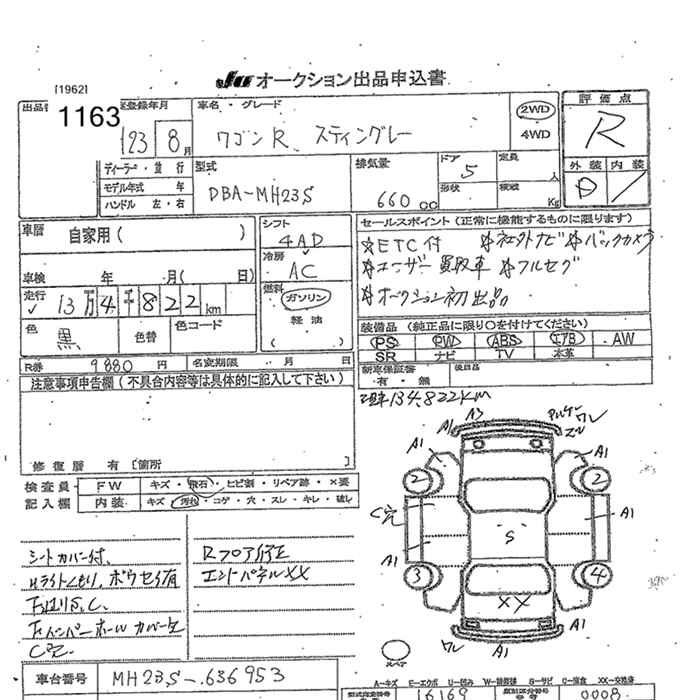 JU オークション出品申込書
[1962]
1163
登録年月
車名・グレード
23 8月
ワゴンR スティングレー
2WD
4WD
評価点
R
外装 内装
D
ディーラー・並行
モデル年式 年
ハンドル 左・右
型式
DBA-MH23S
排気量
660cc
ドア
5
形状
定員
人
積載
Kg
車歴 自家用( )
車検 年 月( 日)
走行
13万4千822km
色
黒
色替
色コード
シフト
4AD
冷房
AC
燃料
ガソリン
軽油
( )
セールスポイント(正常に機能するものに限ります)
☆ETC付 ☆社外ナビ ☆バックカメラ
☆ユーザー買取車 ☆フルセグ
☆オークション初出品
装備品(純正品に限り○を付けてください)
PS PW ABS エアB AW
SR ナビ TV 本革
R券 9880円 名変期限 月 日
新車保証書
有・無
後日品
注意事項申告欄(不具合内容等は具体的に記入して下さい)
134,822KM
修復歴 有[箇所 ]
検査員
記入欄
FW キズ・飛石・ヒビ割・リペア跡・×要
内装 キズ・汚れ・コゲ・穴・スレ・キレ・破レ
A1 A3 ワレ
A1 A1
2 2
C穴 A1
S
A1
3 4
XX
A1 ワレ A1
スペア
シートカバー付、
Hライトくもり、ボウセイ有
下廻りS,C.
Rフロア修正
エンドパネルXX
車台番号 MH23S-636953
A-キズ E-エクボ U-凹み W-補修痕 S-サビ C-腐食 XX-交換済
16169
0008